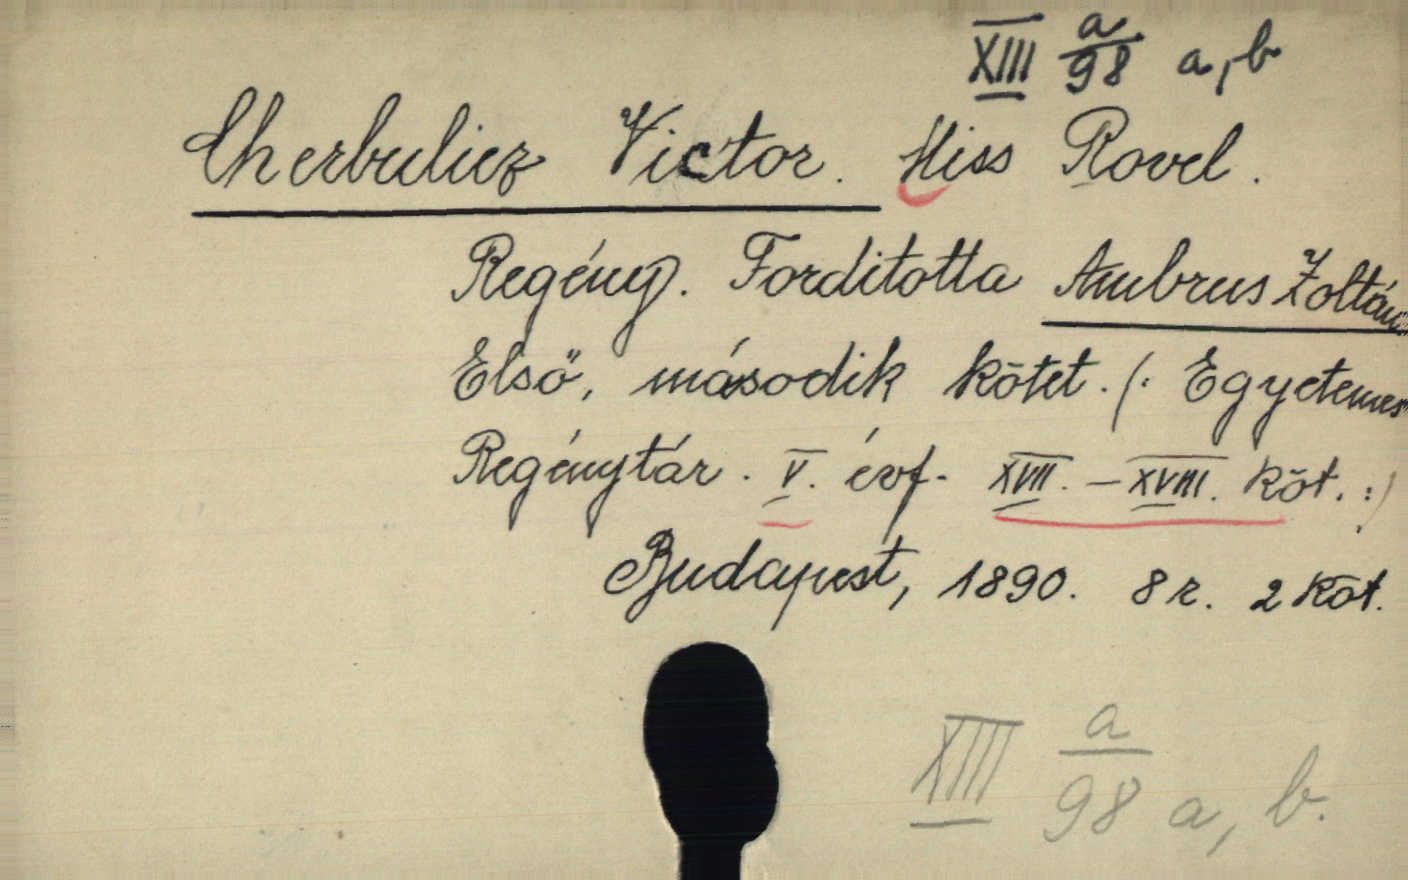 XIII a/98 a, b
Cherbuliez Victor. Miss Rovel.
Regény. Forditotta Ambrus Zoltán
Első, második kötet. (: Egyetemes
Regénytár. V. évf. XVII. – XVIII. Köt. :)
Budapest, 1890. 8 r. 2 Köt.
XIII a/98 a, b.